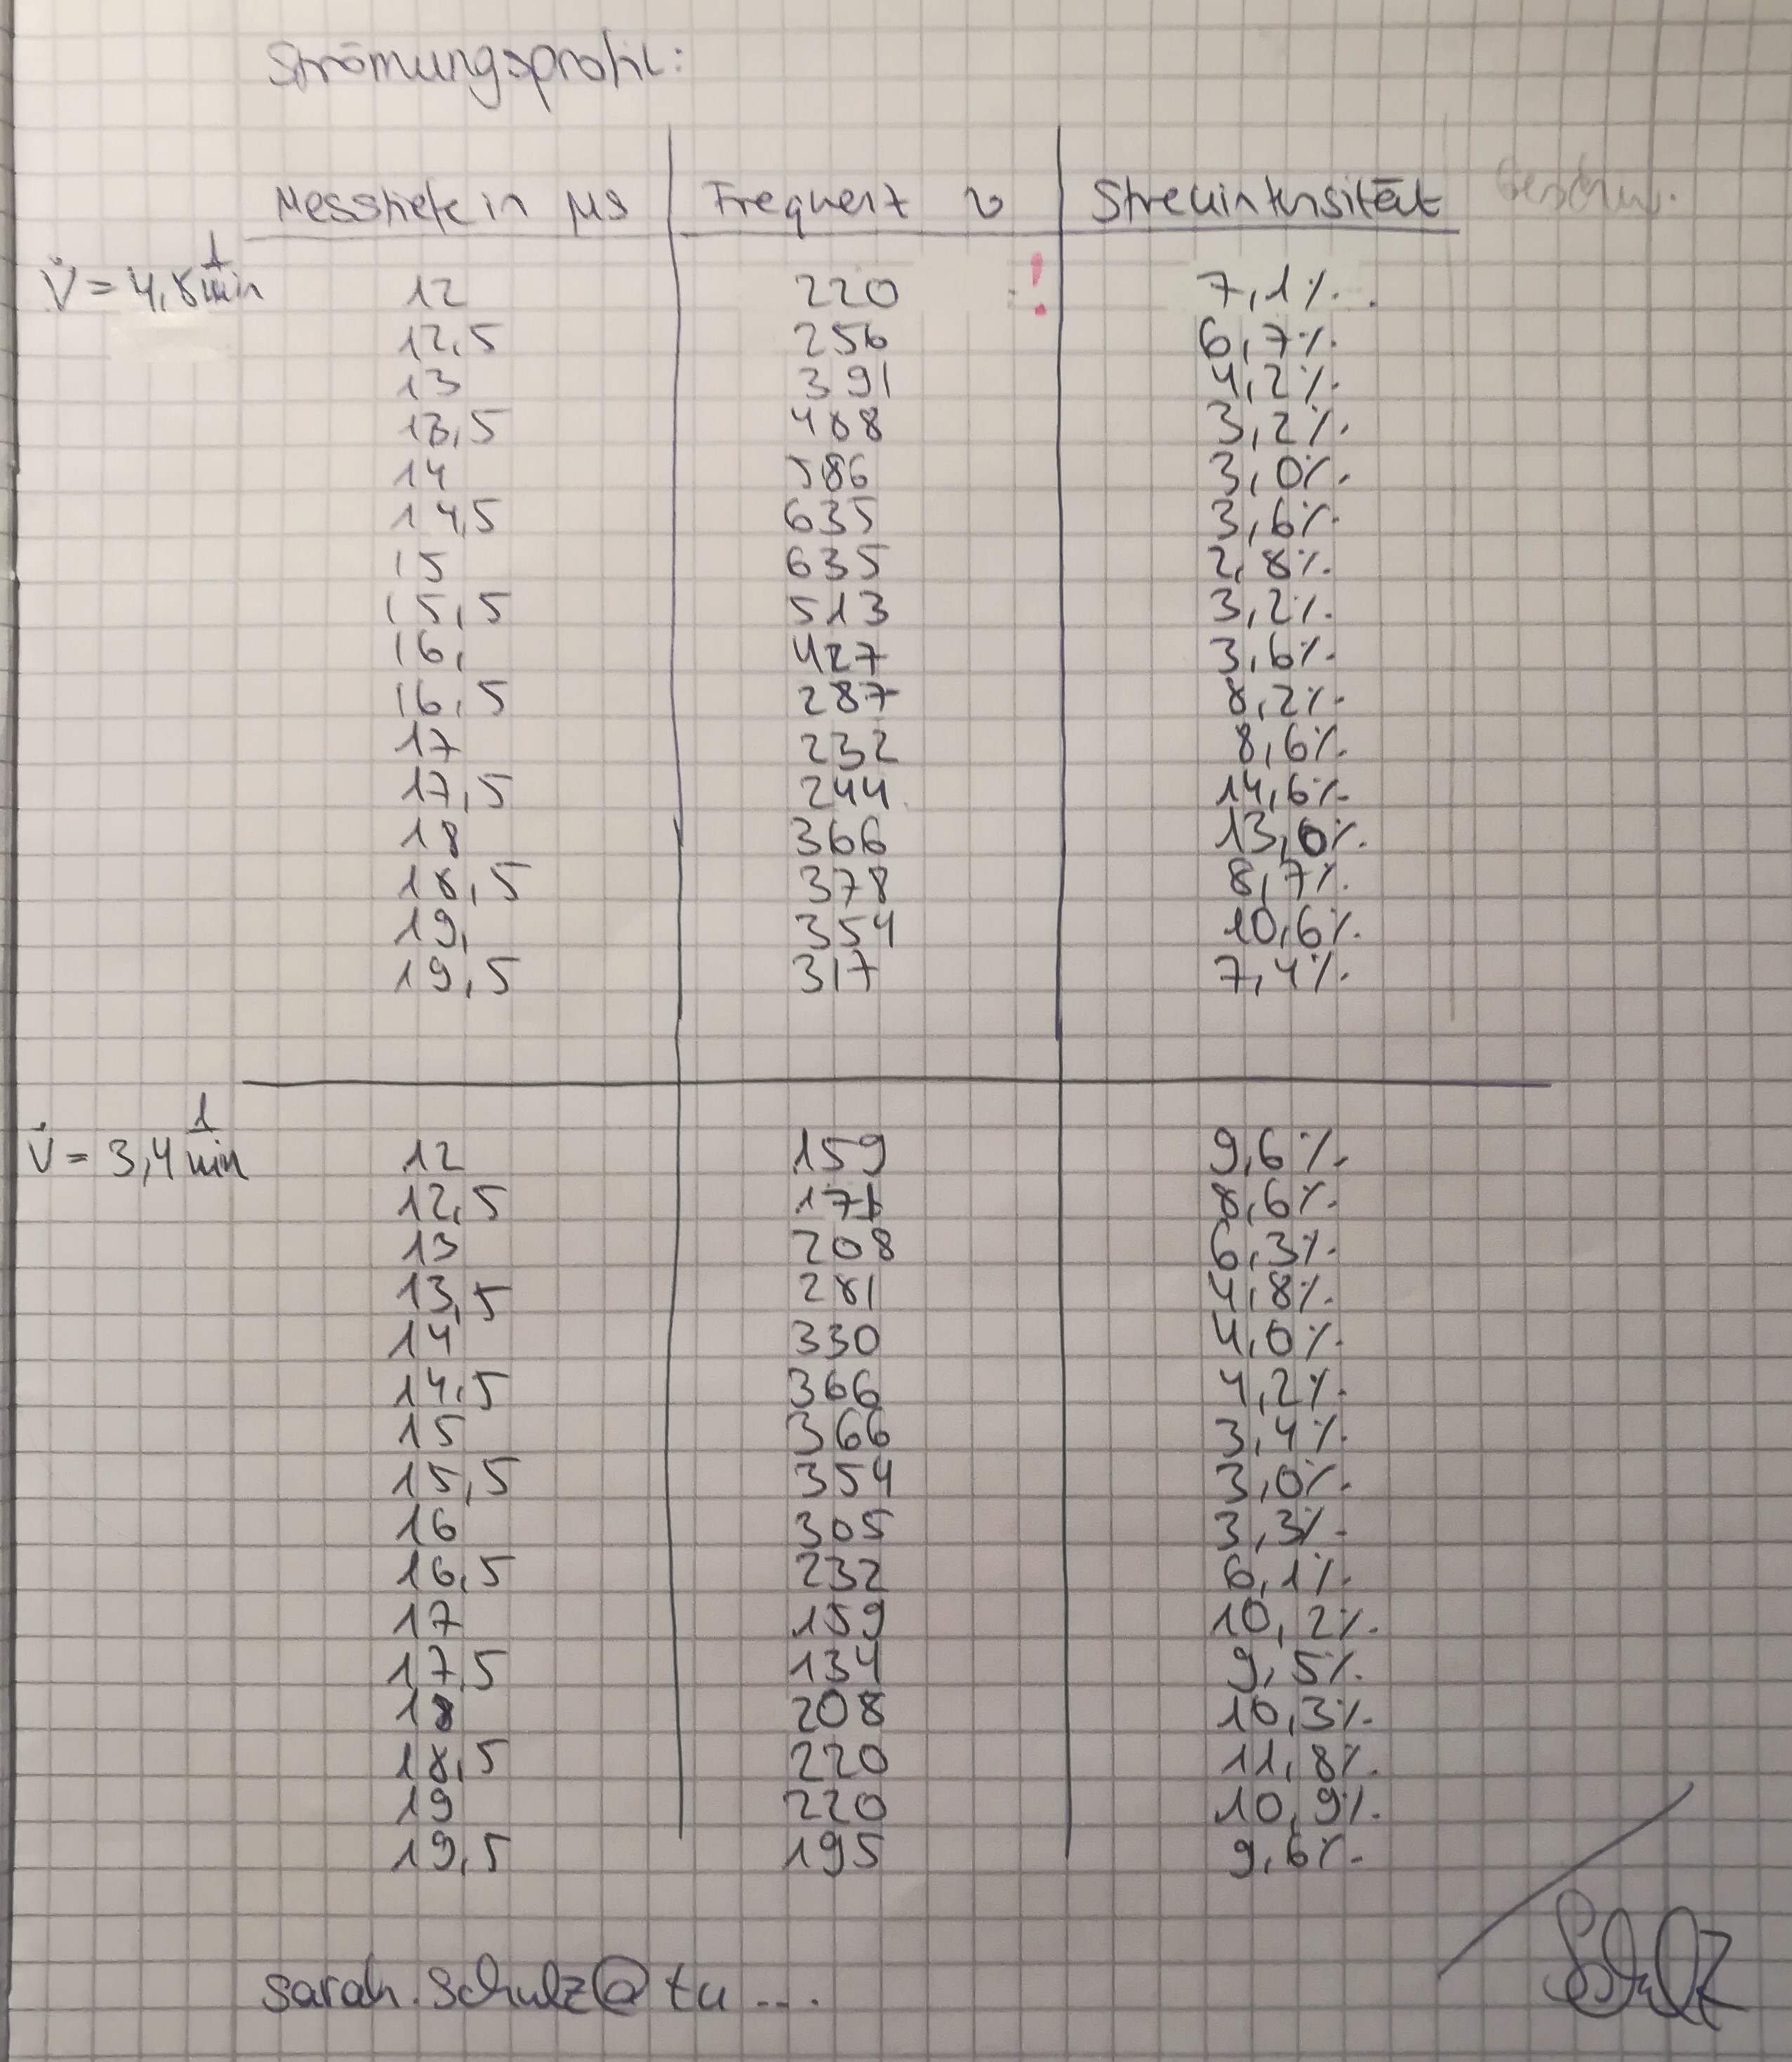 Strömungsprofil:
Messtiefe in µs Frequenz ν Streuintensität
V̇ = 4,8 l/min 12 220 ! 7,1%
12,5 256 6,7%
13 391 4,2%
13,5 488 3,2%
14 586 3,0%
14,5 635 3,6%
15 635 2,8%
15,5 513 3,2%
16, 427 3,6%
16,5 287 8,2%
17 232 8,6%
17,5 244 14,6%
18 366 13,0%
18,5 378 8,7%
19, 354 10,6%
19,5 317 7,4%
V̇ = 3,4 l/min 12 159 9,6%
12,5 171 8,6%
13 208 6,3%
13,5 281 4,8%
14 330 4,0%
14,5 366 4,2%
15 366 3,4%
15,5 354 3,0%
16 305 3,3%
16,5 232 6,1%
17 159 10,2%
17,5 134 9,5%
18 208 10,3%
18,5 220 11,8%
19 220 10,9%
19,5 195 9,6%
sarah.schulz@tu ...